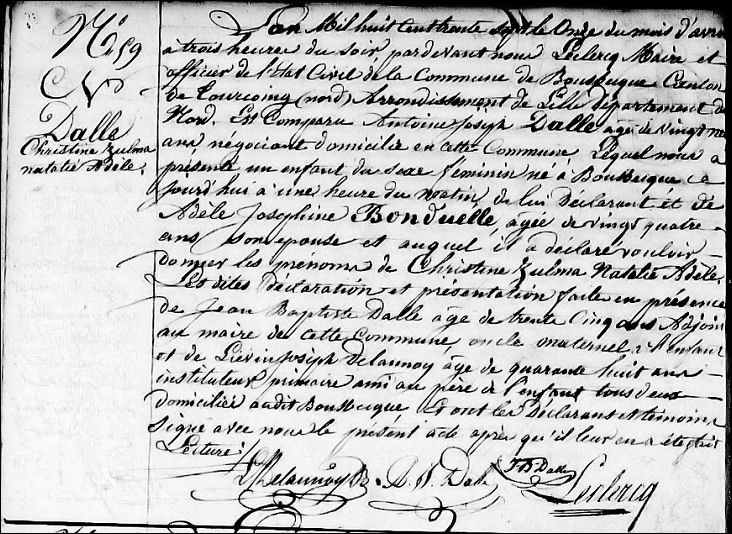 N° 59
N
Dalle
Christine Zulma
natalie Adèle.
L'an Mil huit cent trente sept le Onze du mois d'avril
à trois heures du soir pardevant nous Leclercq Maire et
officier de l'Etat Civil de la Commune de Bousbecque Canton
de Tourcoing (nord) Arrondissement de Lille département du
Nord. Est Comparu Antoine Joseph Dalle agé de vingt neuf
ans, négociant domicilié en cette Commune Lequel nous a
présenté un enfant du sexe féminin né à Bousbecque ce
jourd'hui à une heure du matin, de lui Déclarant et de
Adèle Josephine Bonduelle, agée de vingt quatre
ans son epouse et auquel il a déclaré vouloir
donner les prénoms de Christine Zulma Natalie Adèle.
Les dites Déclaration et présentation faite en présence
de Jean Baptiste Dalle agé de trente Cinq ans Adjoint
au maire de cette Commune, oncle maternel à l'enfant
et de Lievin Joseph Delaunoy âgé de quarante huit ans
instituteur primaire ami au père de l'enfant tous deux
domiciliés audit Bousbecque Et ont les Déclarans et témoins
Signé avec nous le présent acte après qu'il leur en a été fait
Lecture.
Delaunoy Dalle JB Dalle Leclercq